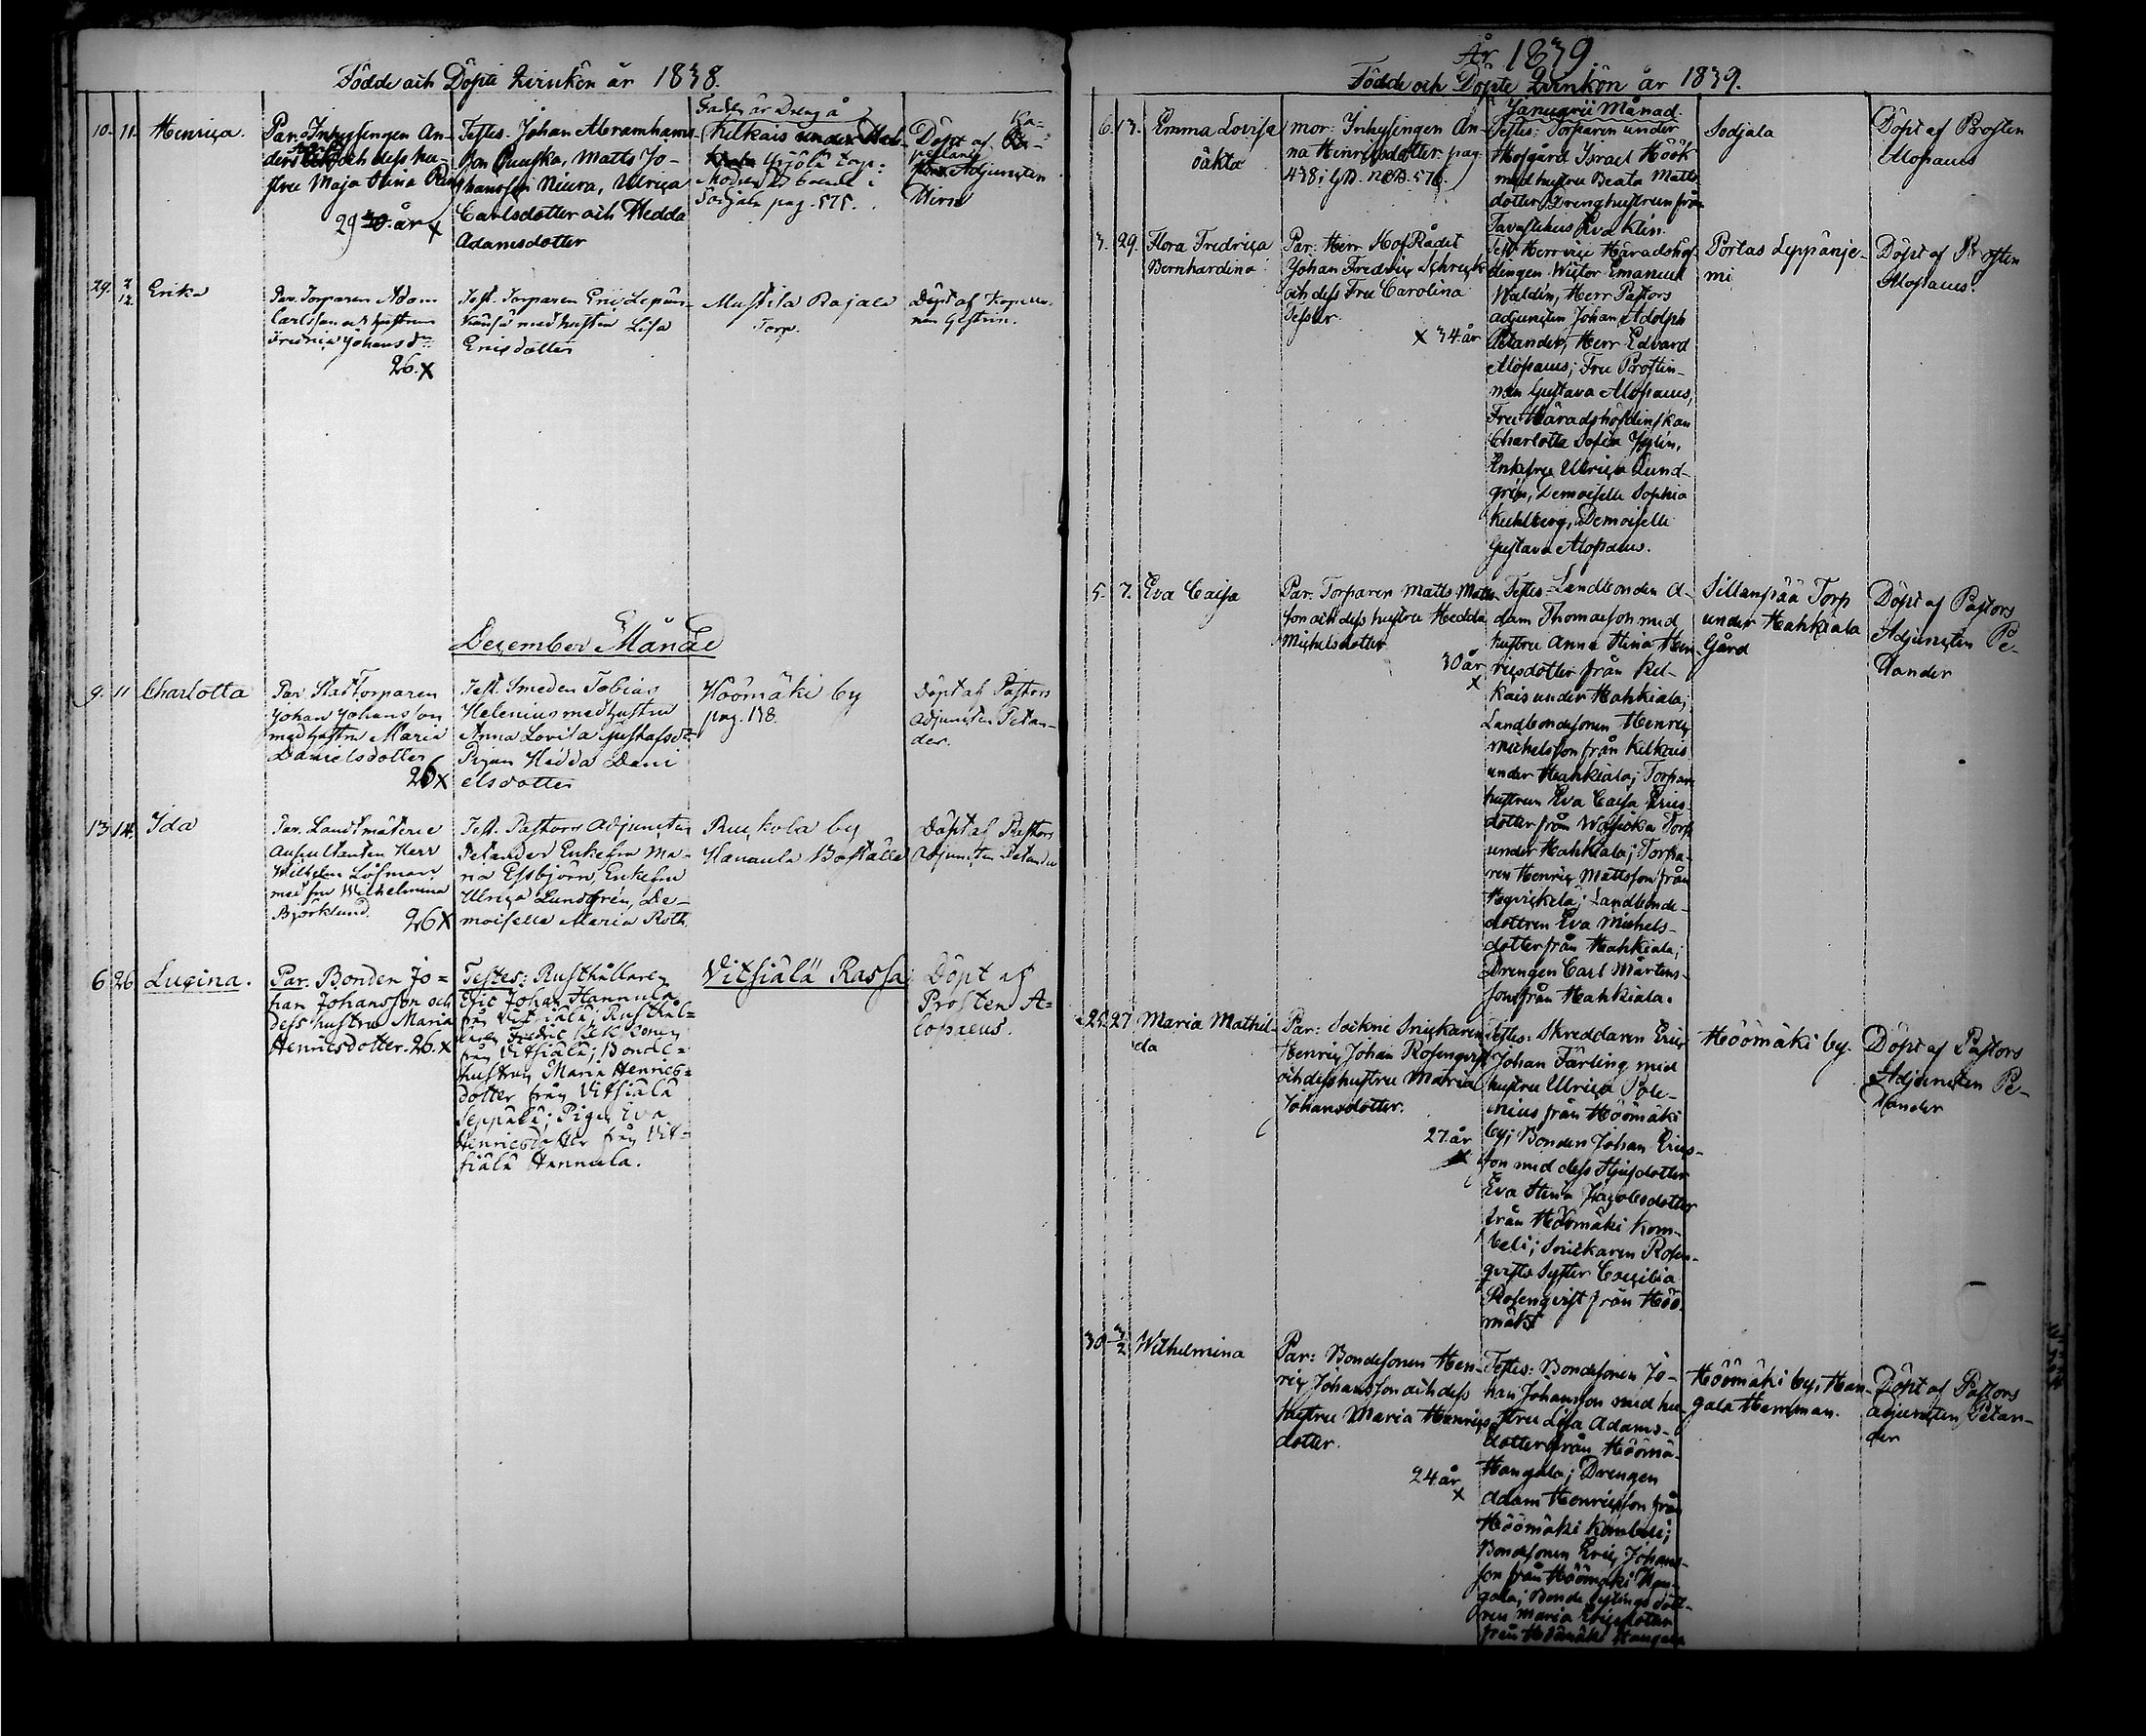 Födde och Döpte Qvinkön år 1838.
10. 11. Henrica.
Par. Inhysingen An-
ders och dess hu-
stru Maja Stina
29 år x
Testes. Johan Abramhams-
son Matts Jo-
hansson Niura, Ulrica
Carlsdotter och Hedda
Adamsdotter
Fadren är Dreng å
Kelkais under
Yrjölä torp.
Modren är boende i
Sodjala pag. 575.
Döpt af Ka-
pellans
Adjuncten
Hirn
29. 2/12. Erika
Par. Torparen Adam
Carlsson och hustrun
Fredrica Johansdr
26. x
Test. Torparen Eric
med hustru Lisa
Ericsdotter
Mustila Rajala
Torp.
Döpt af Kapella-
nen Gestrin.
December Månad
9. 11 Charlotta
Par. Torparen
Johan Johansson
med hustru Maria
Danielsdotter
26 x
Test. Smeden Tobias
Helenius med hustru
Anna Lovisa Gustafsdr
Pigan Hedda Dani
elsdotter
Höömäki by
pag. 118.
Döpt af Pastors
adjuncten Petan-
der.
13. 14. Ida
Par. Landtmäterie
Auscultanten Herr
Wilhelm Löfman
med fru Wilhelmina
Björklund.
26 x
Test. Pastors Adjuncten
Petander Enkefru Ma-
ria Essbjörn, Enkefru
Ulrica Lundgrén, De-
moiselle Maria Roth
Ruskola by
Hanaula Boställe
Döpt af Pastors
Adjuncten Petander
6 26 Lucina.
Par. Bonden Jo=
han Johansson och
dess hustru Maria
Henricsdotter. 26. x
Testes: Rusthållaren
Eric Johan Hannula
från Vitsiälä; Rusthål=
laren Fredric Pekkonen
från Vitsiälä; Bonde=
hustrun Maria Henrics=
dotter från Vitsiälä
Seppälä; Pigan Eva
Henricsdotter från Vit=
siälä Hannula.
Vitsiälä Rassa
Döpt af
Prosten A=
lopaeus.
År 1839
Födde och Döpte Qvinkön år 1839.
Januarii Månad.
6. 13. Emma Lovisa
oäkta
mor: Inhysingen An-
na Henricsdotter pag.
438 i
Testes: Torparen under
Hofgård Israel Höök
med hustru Beata Matts
dotter Drenghustrun från
Tavastehus Eva Klin.
Sodjala
Döpt af Prosten
Alopaeus
3. 29. Flora Fredrica
Bernhardina
Par: Herr HofRådet
Johan Fredric Schreck
och dess Fru Carolina
Tesler.
x 34 år
Test: Herr vice Häradshöf-
dingen Wictor Emanuel
Waldén, Herr Pastors
adjuncten Johan Adolph
Petander, Herr Edvard
Alopaeus; Fru Prostin-
nan Gustava Alopaeus,
Fru Häradshöfdinskan
Charlotta Sofia
Enkefru Ulrica Lund-
grén, Demoiselle Sophia
Kuhlberg, Demoiselle
Gustava Alopaeus.
Portas Leppänje-
mi
Döpt af Prosten
Alopaeus.
5. 7. Eva Caisa
Par. Torparen Matts Matts-
son och dess hustru Hedda
Michelsdotter
30 år
x
Testes: Landbonden A-
dam Thomasson med
hustru Anna Stina Hen-
ricsdotter från Kel-
kais under Hahkiala;
Landbondesonen Henric
Michelsson från Kelkais
under Hahkiala; Torpare
hustrun Eva Caisa Erics-
dotter från Torp
under Hahkiala; Torpa-
ren Henric Mattsson från
Landbonde-
dottren Eva Michels-
dotter från Hahkiala;
Drengen Carl Mårtens-
son från Hahkiala.
Sillanpää Torp
under Hahkiala
Gård
Döpt af Pastors
Adjuncten Pe-
tander
25. 27 Maria Mathil-
da
Par: Sockne Snickaren
Henric Johan Rosenqvist
och dess hustru Maria
Johansdotter.
27 år
x
Testes: Skreddaren Eric
Johan Färling med
hustru Ulrica Pole-
nius från Höömäki
by; Bonden Johan Erics-
son med dess Styfdotter
Eva Stina Jacobsdotter
från Höömäki Kom-
beli; Snickaren Rosen-
qvists Syster Cecilia
Rosenqvist från Höö-
mäki
Höömäki by.
Döpt af Pastors
Adjuncten Pe-
tander
30 3/2 Wilhelmina
Par: Bondesonen Hen-
ric Johansson och dess
hustru Maria Henrics
dotter.
24 år
x
Testes: Bondesonen Jo-
han Johansson med hu-
stru Lisa Adams-
dotter från Höömä-
Hangala; Drengen
Adam Henricsson från
Höömäki Kombeli;
Bondesonen Eric Johans-
son från Höömäki Han-
gala; Bonde dott-
ren Maria Ericsdotter
från Höömäki Hangala
Höömäki by, Han-
gala Hemman.
Döpt af Pastors
adjuncten Petan-
der